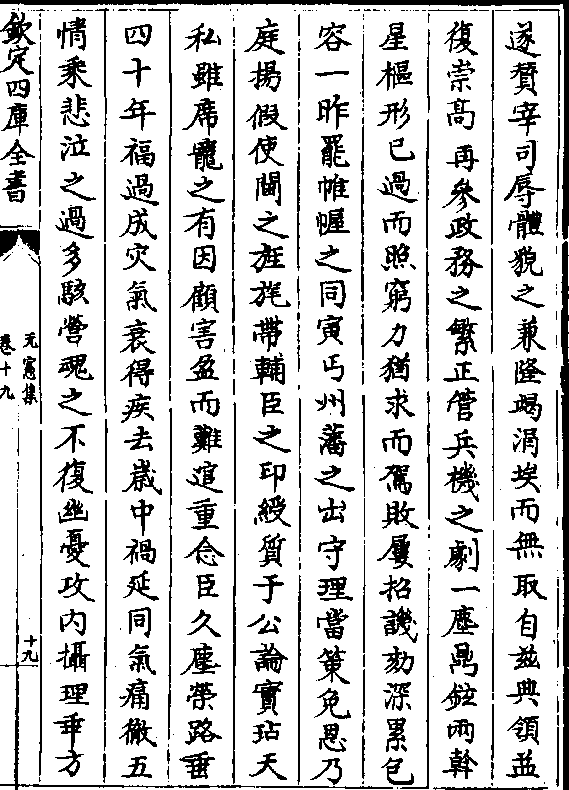 遂賛宰司辱體貌之兼隆竭涓埃而無取自兹典領益
復崇髙再參政務之繁正管兵機之劇一塵鼎鉉兩斡
星樞形已過而照窮力猶求而駕敗屢招譏劾深累包
容一昨罷帷幄之同寅丐州藩之出守理當策免恩乃
庭揚假使閫之旌旄帶輔臣之印綬質于公論實玷天
私雖席寵之有因顧害盈而難逭重念臣久塵榮路垂
四十年福過成灾氣衰得疾去歳中禍延同氣痛徹五
情乘悲泣之過多駭營魂之不復幽憂攻内攝理乖方
欽定四庫全書
元憲集
卷十九
十九